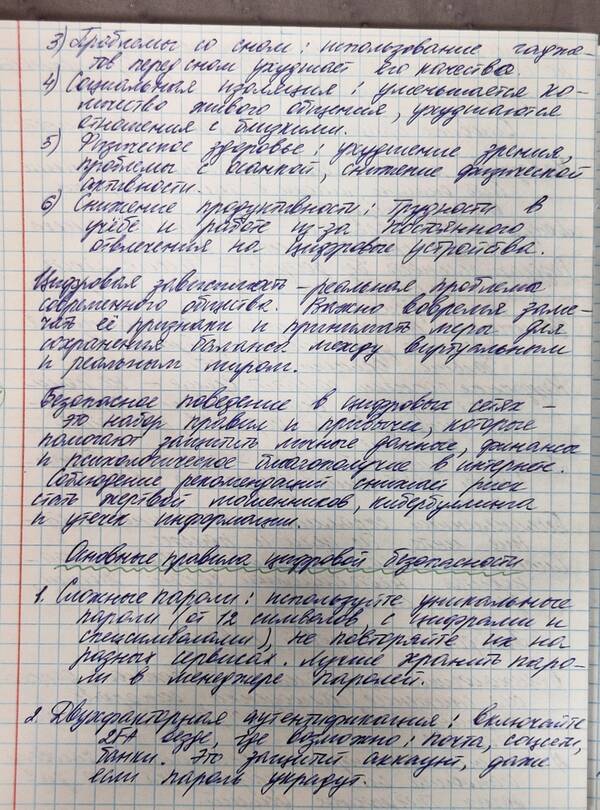 3) Проблемы со сном: использование гадже-
тов перед сном ухудшает его качества.
4) Социальная изоляция: уменьшается ко-
личество живого общения, ухудшаются
отношения с близкими.
5) Физическое здоровье: ухудшение зрения,
проблемы с осанкой, снижение физической
активности.
6) Снижение продуктивности: Трудности в
учёбе и работе из-за постоянного
отвлечения на цифровые устройства.
Цифровая зависимость - реальная проблема
современного общества. Важно вовремя заме-
чать её признаки и принимать меры для
сохранения баланса между виртуальным
и реальным миром.
Безопасное поведение в цифровых сетях -
это набор правил и привычек, которые
помогают защитить личные данные, финансы
и психологическое благополучие в интернет.
Соблюдение рекомендаций снижает риск
стать жертвой мошенников, кибербуллинга
и утечек информации.
Основные правила цифровой безопасности
1. Сложные пароли: используйте уникальные
пароли (от 12 символов, с цифрами и
спецсимволами), не повторяйте их на
разных сервисах. Лучше хранить паро-
ли в менеджере паролей.
2. Двухфакторная аутентификация: включайте
2FA везде, где возможно: почта, соцсети,
банки. Это защитит аккаунт, даже
если пароль украдут.